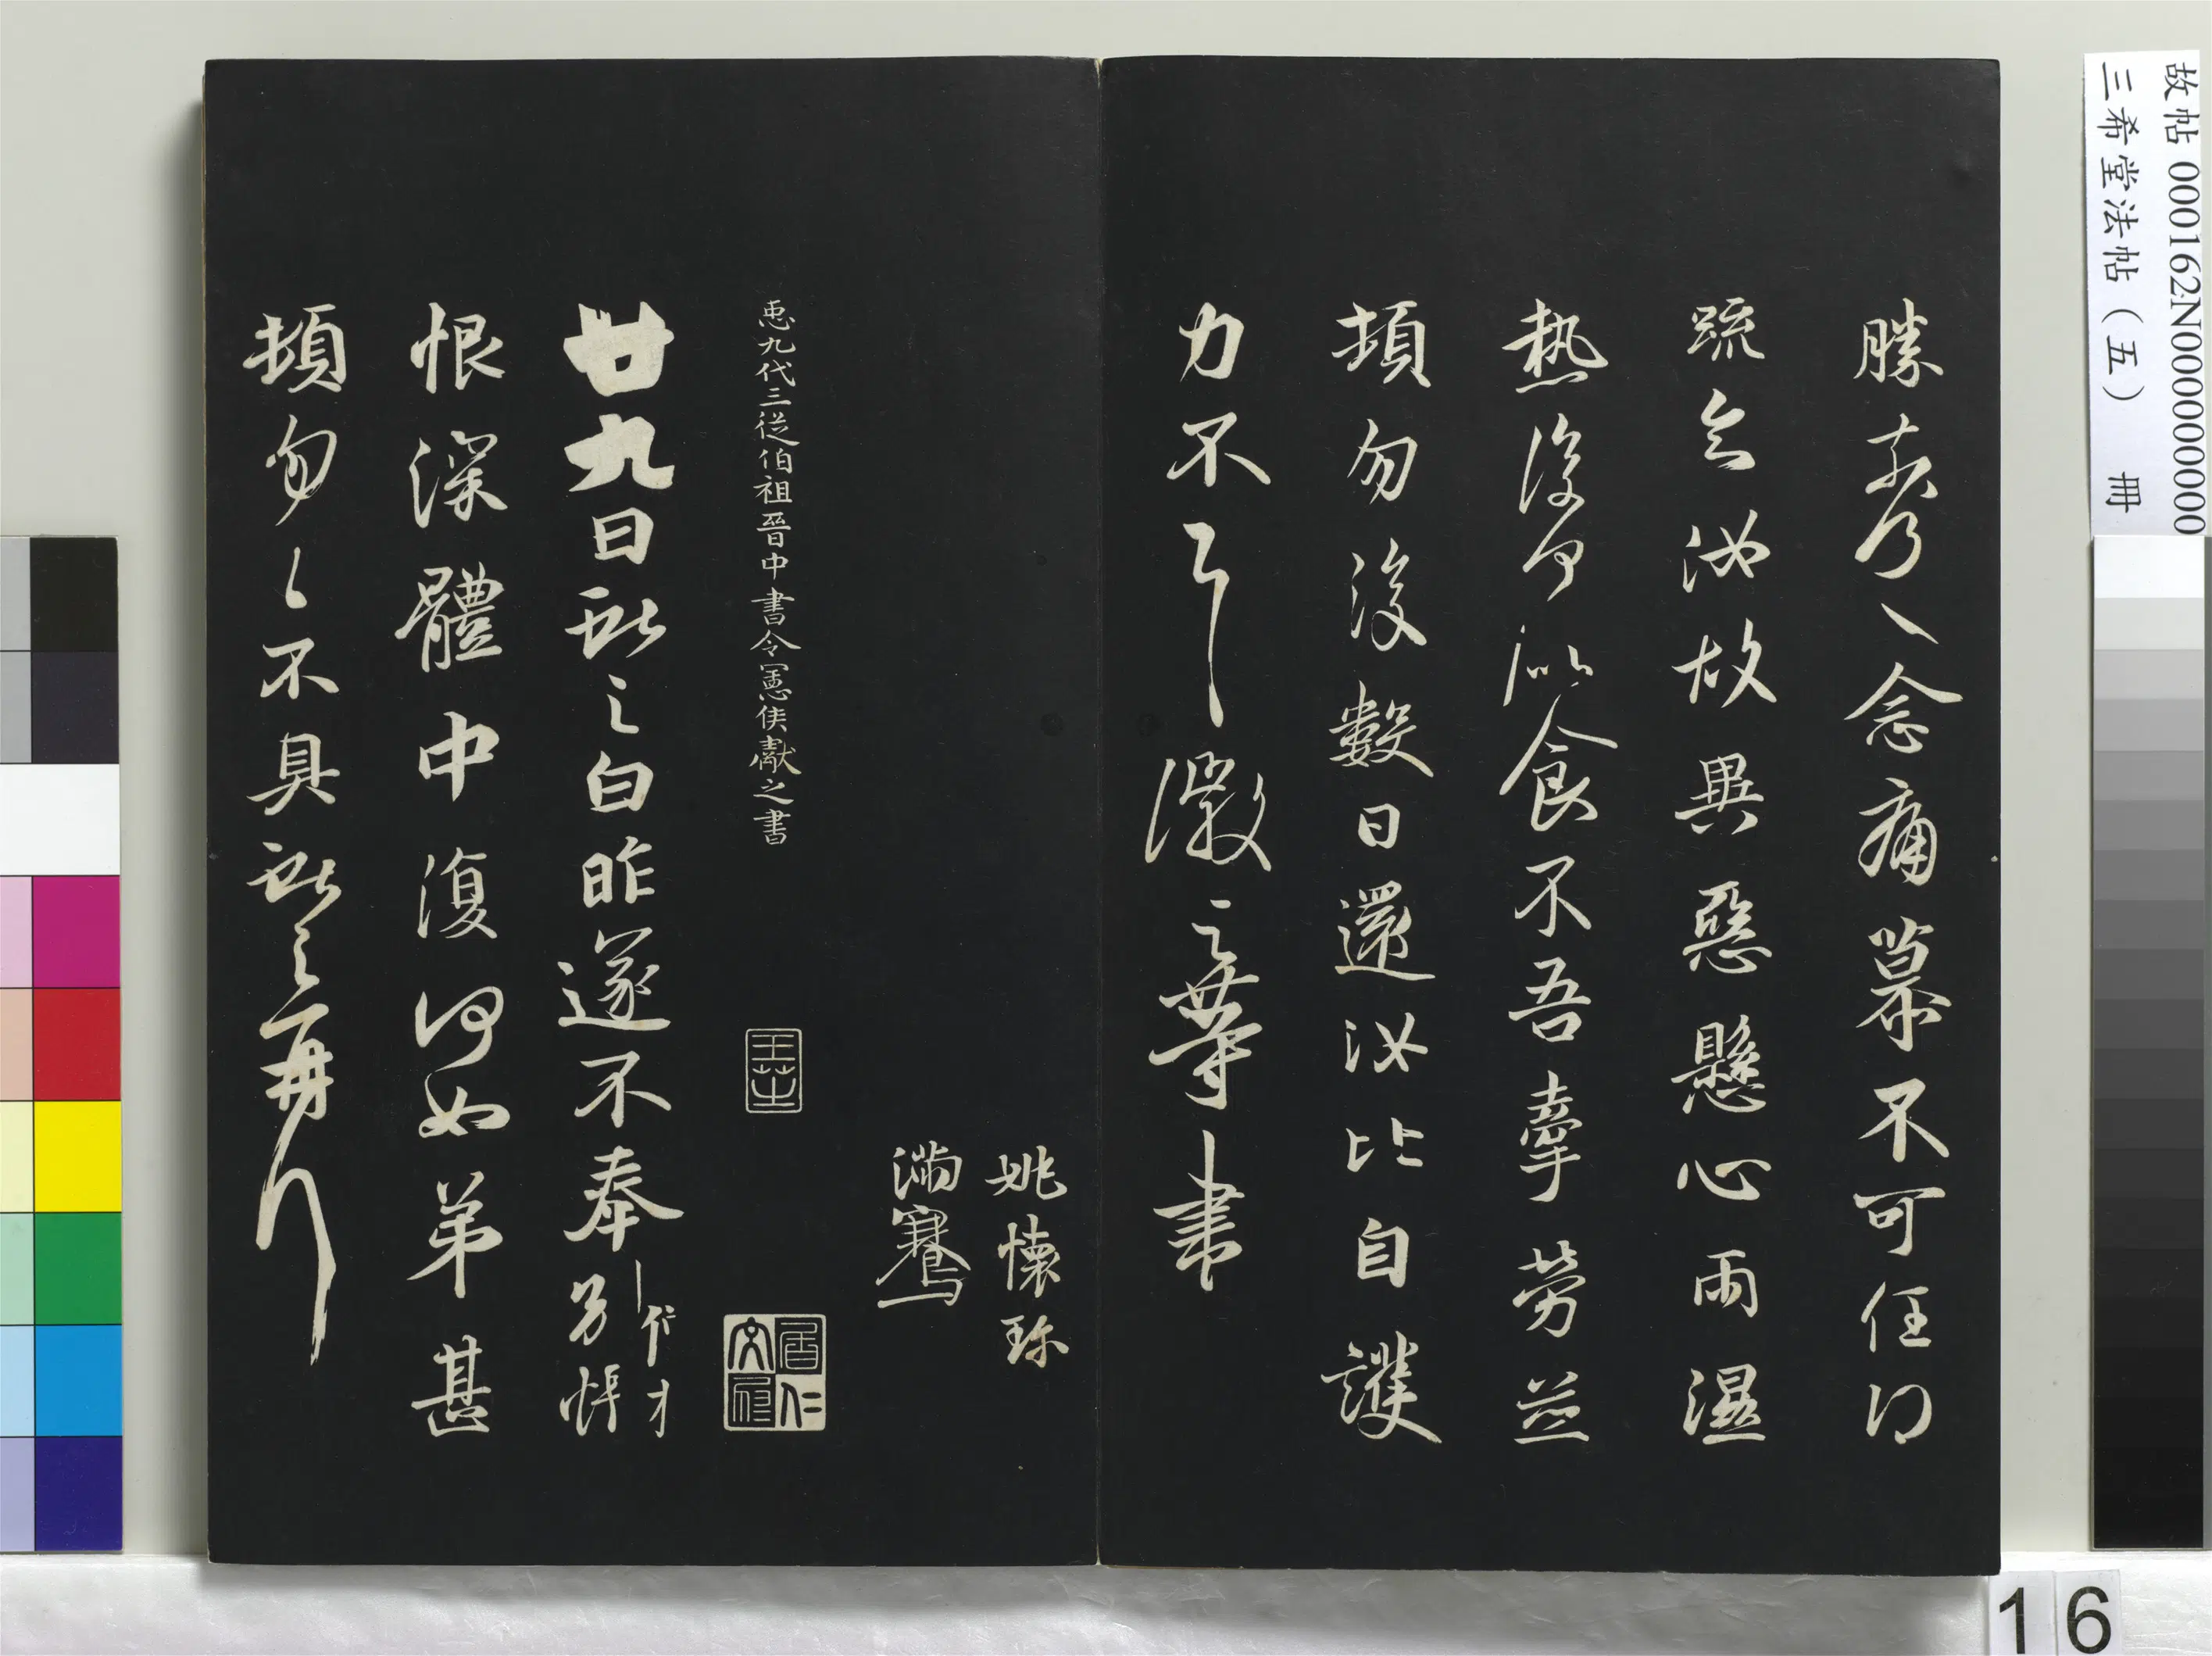 故帖 000162N000000000
三希堂法帖（五） 冊
勝奈何〻念痛慕不可任得
疏知汝故異惡懸心雨濕
熱復何似食不吾牽勞並
頓勿復數日還汝比自護
力不 徽之等書
姚懷珍
滿騫
𢘑九代三從伯祖晉中書令憲侯獻之書
王芝
廿九日獻之白昨遂不奉別悵
恨深體中復何如弟甚
頓勿〻不具獻之再拜
16